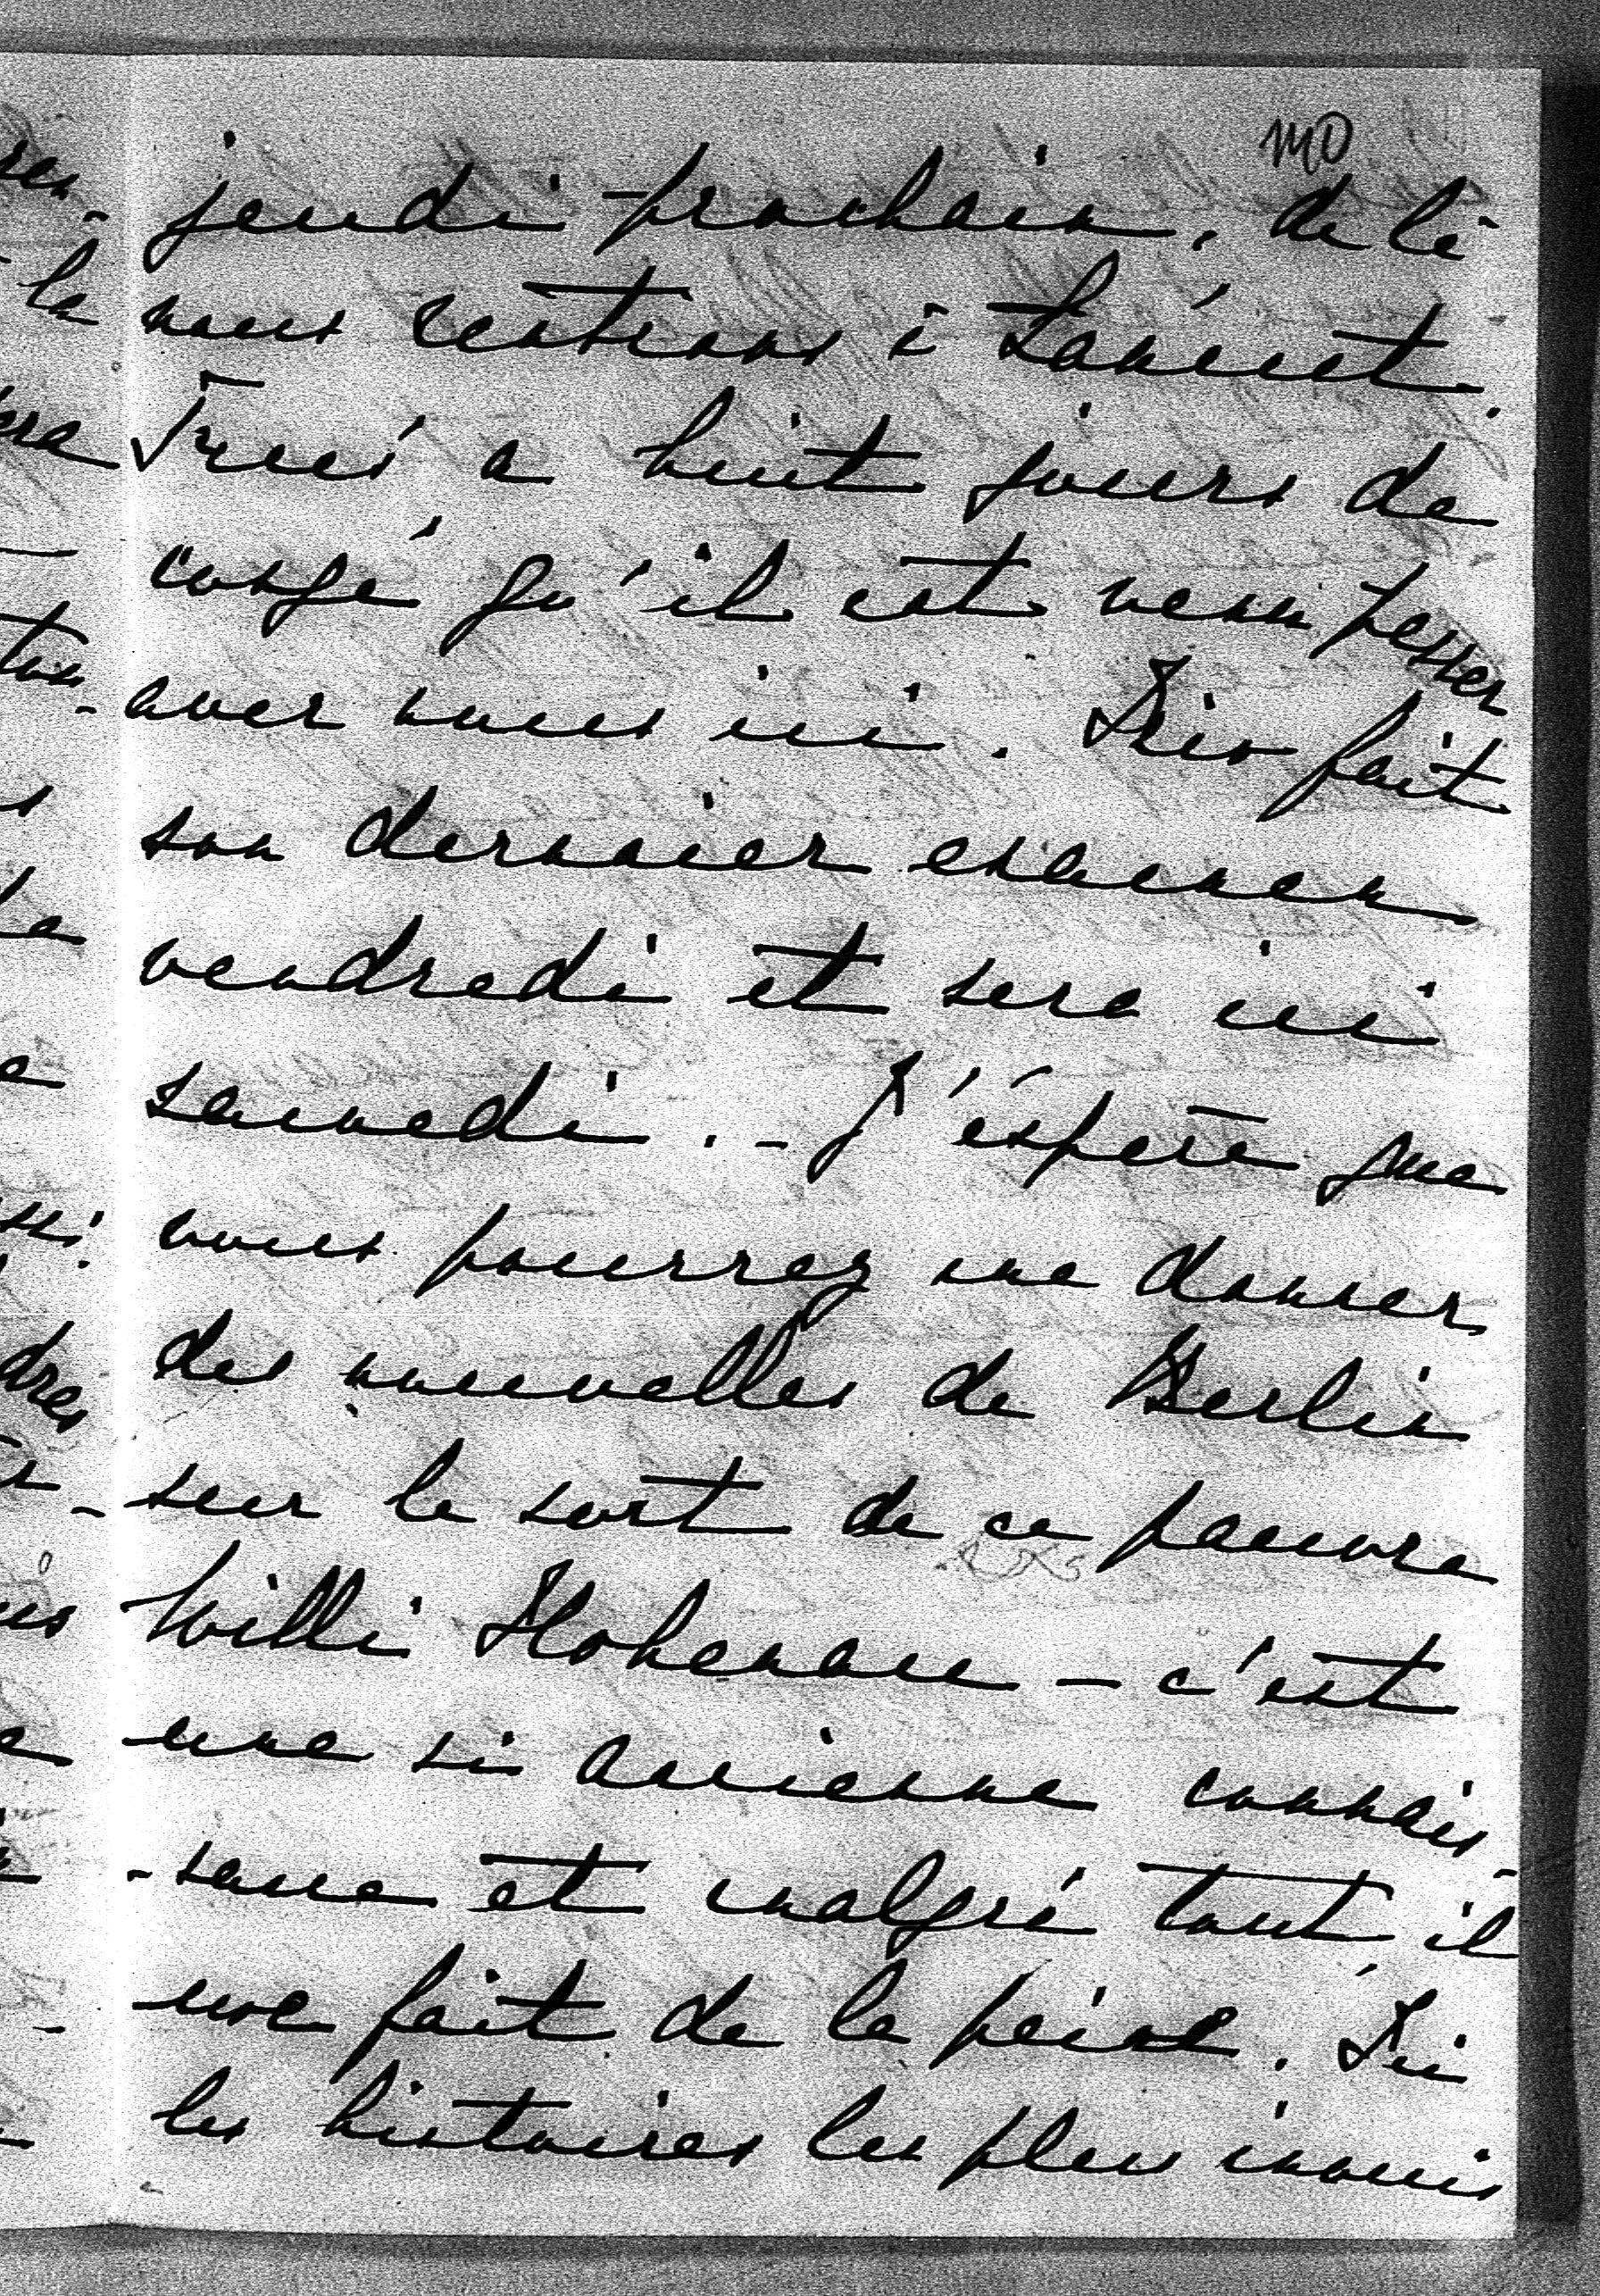 jeudi prochain, de là
nous rentrons à Lancut.
a huit jours de
congé qu'il est venu passer
avec nous ici. fait
son dernier examen
vendredi et sera ici
samedi. - J'éspère que
vous pourrez me donner
des nouvelles de Berlin
sur le sort de ce pauvre
Willi Hohenau - c'est
une si ancienne connais-
-sance et malgré tout il
me fait de la peine. Ici
les histoires les plus inouis